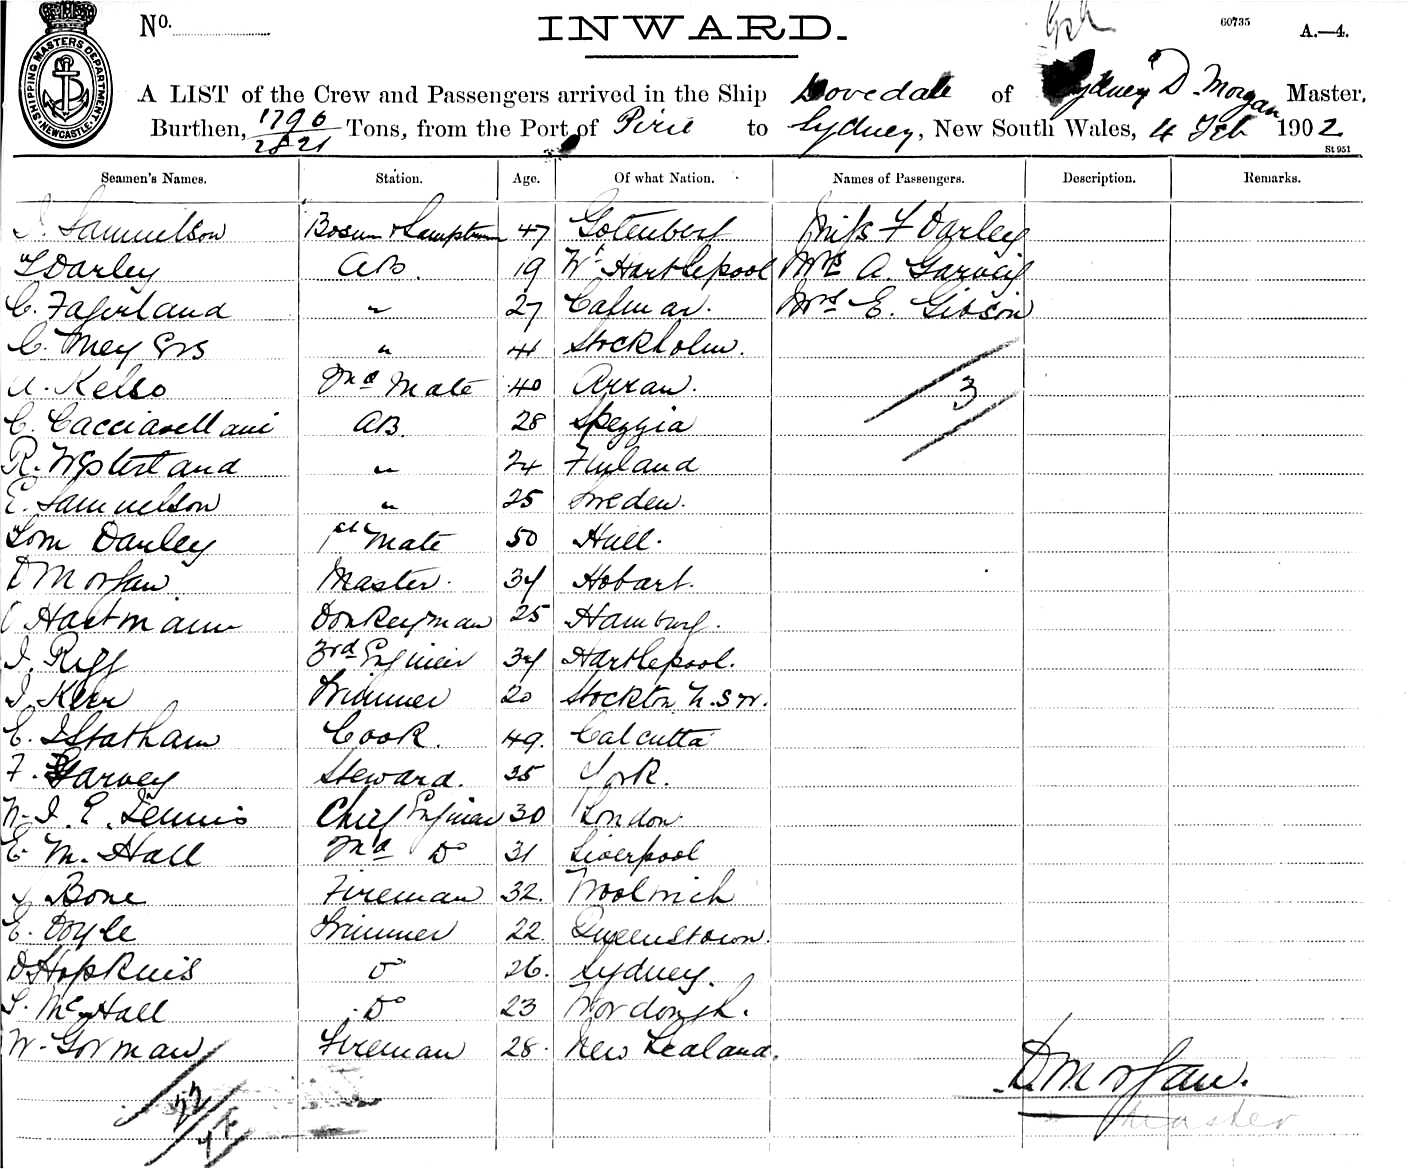 SHIPPING MASTERS DEPARTMENT NEWCASTLE
No. INWARD. 60735 A.—4.
A LIST of the Crew and Passengers arrived in the Ship Dovedale of Sydney D Morgan Master,
Burthen, 1796/2821 Tons, from the Port of Pirie to Sydney, New South Wales, 4 Feb 1902
St 951
Seamen's Names. Station. Age. Of what Nation. Names of Passengers. Description. Remarks.
Samuelson Bosun & Lamptrim 47 Gotenberg Miss F Darley
T Darley AB. 19 Wt Hartlepool Mrs A. Garvey
C. Fagerland " 27 Calmar. Mrs E. Gibson
C. Meyers " 41 Stockholm.
A. Kelso 2nd Mate 40 Arran. 3
C. Cacciavellani AB. 28 Spezzia
R. Westerland " 24 Finland
E. Samuelson " 25 Sweden.
Tom Darley 1st Mate 50 Hull.
D Morgan Master. 34 Hobart.
Hartmann Donkeyman 25 Hamburg.
J. Rigg 3rd Engineer 34 Hartlepool.
J. Kerr Trimmer 20 Stockton N.S.W.
E. J Statham Cook. 49. Calcutta
F. Garvey Steward. 35 York.
W. J. E. Tennis Chief Engineer 30 London.
E. M. Hall 2nd Do 31 Liverpool
Bone Fireman 32. Woolwich
E. Doyle Trimmer 22. Queenstown.
D Hopkins Do 26. Sydney.
S. McHall Do 23
W. Gorman Fireman 28. New Zealand.
22
D Morgan.
Master